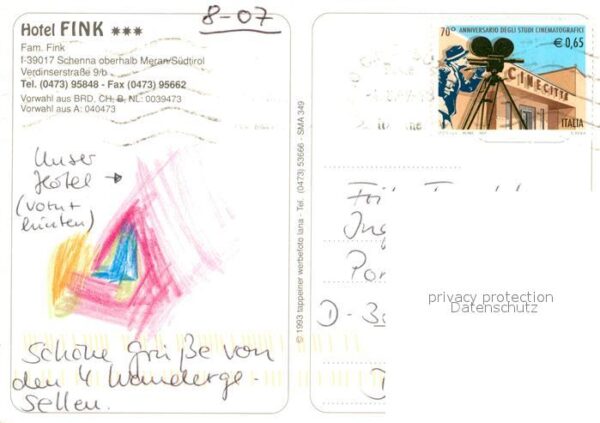 8-07
Hotel FINK ***
Fam. Fink
I-39017 Schenna oberhalb Meran/Südtirol
Verdinserstraße 9/b
Tel. (0473) 95848 - Fax (0473) 95662
Vorwahl aus BRD, CH, B, NL: 0039473
Vorwahl aus A: 040473
Unser
Hotel
(vorn +
hinten)
Schöne Grüße von
den 4 Wanderge-
sellen.
© 1993 tappeiner werbefoto lana - Tel. (0473) 53666 - SMA 349
70° ANNIVERSARIO DEGLI STUDI CINEMATOGRAFICI
€ 0,65
CINECITTÀ
ITALIA
D-
privacy protection
Datenschutz